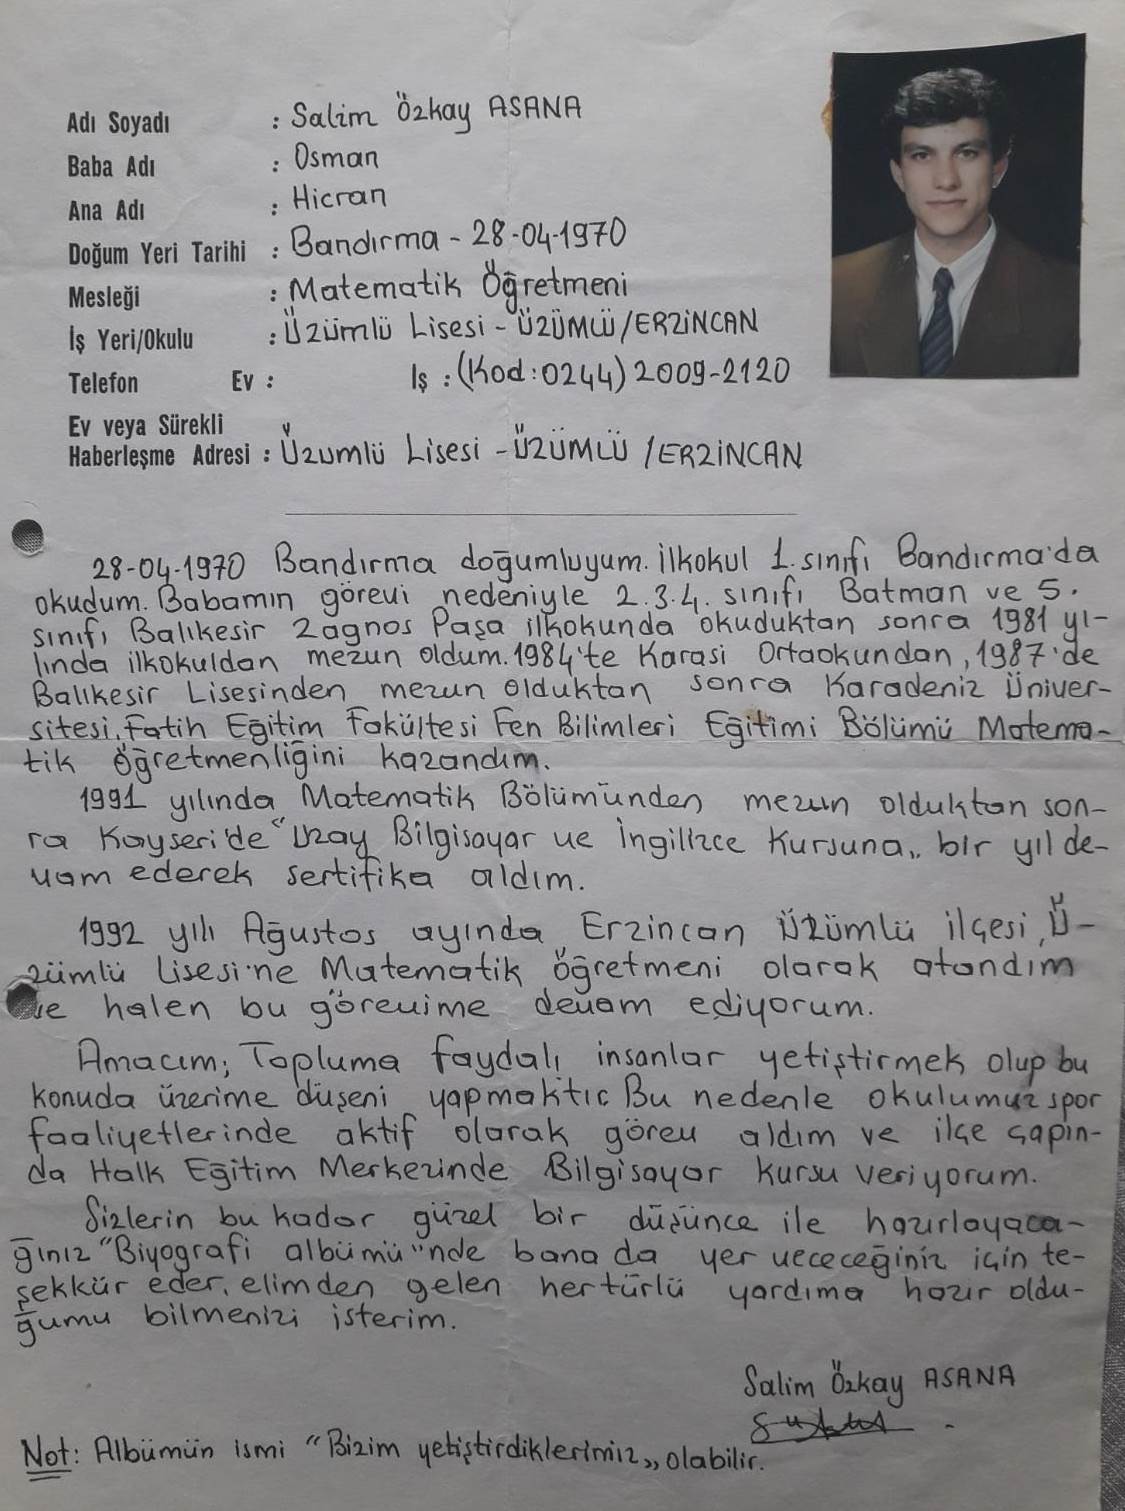 Adı Soyadı : Salim Özkay ASANA
Baba Adı : Osman
Ana Adı : Hicran
Doğum Yeri Tarihi : Bandırma - 28-04-1970
Mesleği : Matematik Öğretmeni
İş Yeri/Okulu : Üzümlü Lisesi - ÜZÜMLÜ/ERZİNCAN
Telefon Ev : İş : (Kod:0244) 2009-2120
Ev veya Sürekli
Haberleşme Adresi : Üzumlü Lisesi - ÜZÜMLÜ /ERZİNCAN
28-04-1970 Bandırma doğumluyum. İlkokul 1. sınıfı Bandırma'da
okudum. Babamın görevi nedeniyle 2.3.4. sınıfı Batman ve 5.
sınıfı Balıkesir Zagnos Paşa ilkokunda okuduktan sonra 1981 yı-
lında ilkokuldan mezun oldum. 1984'te Karasi Ortaokundan, 1987'de
Balıkesir Lisesinden mezun olduktan sonra Karadeniz Üniver-
sitesi, Fatih Eğitim Fakültesi Fen Bilimleri Eğitimi Bölümü Matema-
tik öğretmenliğini kazandım.
1991 yılında Matematik Bölümünden mezun olduktan son-
ra Kayseri'de "Uzay Bilgisayar ve İngilizce Kursuna,, bir yıl de-
vam ederek sertifika aldım.
1992 yılı Ağustos ayında Erzincan Üzümlü ilçesi, Ü-
zümlü Lisesi'ne Matematik öğretmeni olarak atandım
ve halen bu görevime devam ediyorum.
Amacım; Topluma faydalı insanlar yetiştirmek olup bu
konuda üzerime düşeni yapmaktır. Bu nedenle okulumuz spor
faaliyetlerinde aktif olarak görev aldım ve ilçe çapın-
da Halk Eğitim Merkezinde Bilgisayar kursu veriyorum.
Sizlerin bu kadar güzel bir düşünce ile hazırlayaca-
ğınız "Biyografi albümü"nde bana da yer vereceğiniz için te-
şekkür eder, elimden gelen hertürlü yardıma hazır oldu-
ğumu bilmenizi isterim.
Salim Özkay ASANA
Not: Albümün ismi "Bizim yetiştirdiklerimiz,, olabilir.